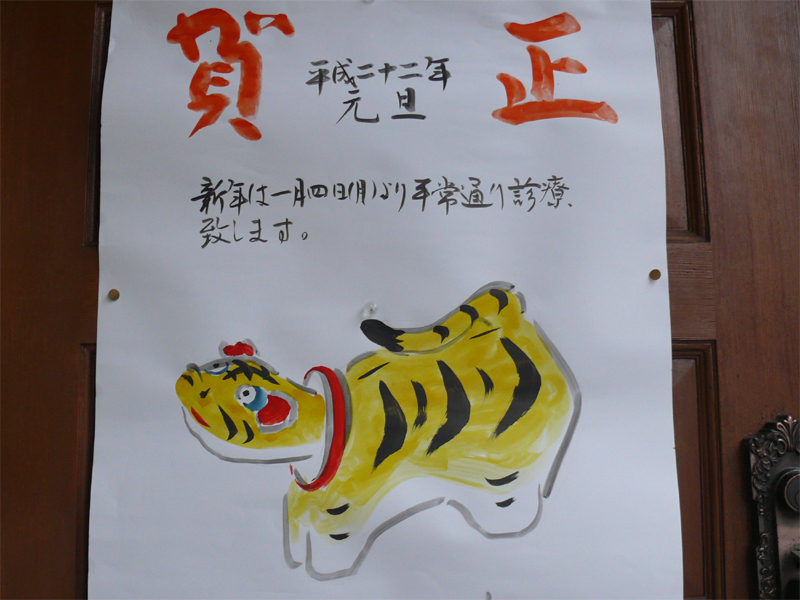 賀正
平成二十二年
元旦
新年は一月四日(月)より平常通り診療
致します。